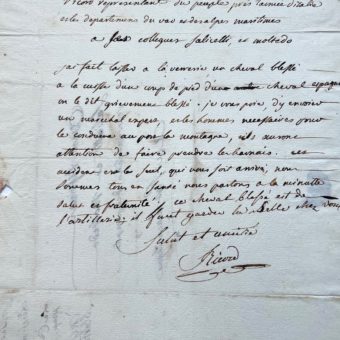 Ricord représentant du peuple près l'armée d'italie
et les departemens du var et des alpes maritimes
a ses collegues salicetti, et moltedo
j'ai fait laisser a la verrerie un cheval blessé
a la cuisse d'un coup de pied d'un cheval espagnol
on le dit grievement blessé. je vous prie d'y envoier
un marechal expert, et les hommes necessaires pour
le conduire au pos la montagne, ils auront
attention de faire prendre les harnais. cet
accident est le seul, qui nous soit arrivé, nous
sommes tous en santé nous partons a la minutte
salut et fraternité. ce cheval blessé est de
l'artillerie; il faut garder la selle chez vous
Salut et amitié
Ricord